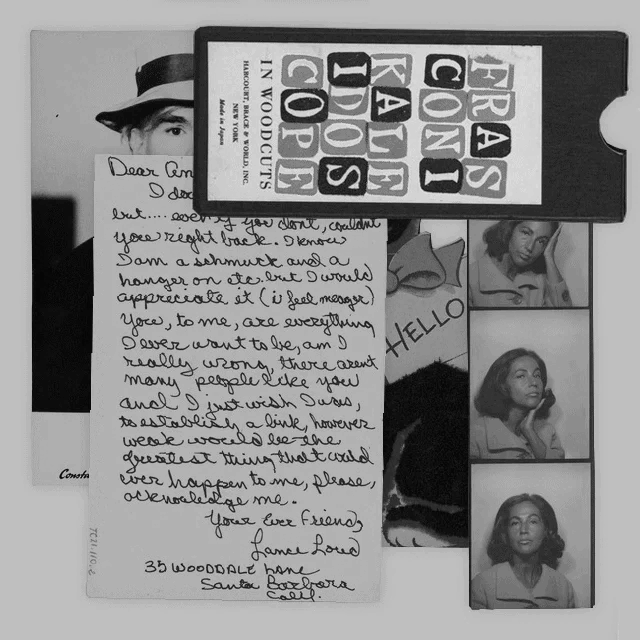 FRAS
CONI
KALE
IDOS
COPE
IN WOODCUTS
HARCOURT, BRACE & WORLD, INC.
NEW YORK
Made in Japan
Dear An
I do
but.... even if you dont, couldnt
you right back. I know
I am a schmuck and a
hanger on etc. but I would
appreciate it (i feel meager)
You, to me, are everything
I ever want to be, am I
really wrong, there arent
many people like you
and I just wish I was,
to establish a link, however
weak would be the
greatest thing that could
ever happen to me, please,
acknowledge me.
Your Ever Friend,
Lance Loud
35 WOODDALE LANE
Santa Barbara
Calif.
HELLO
Constr